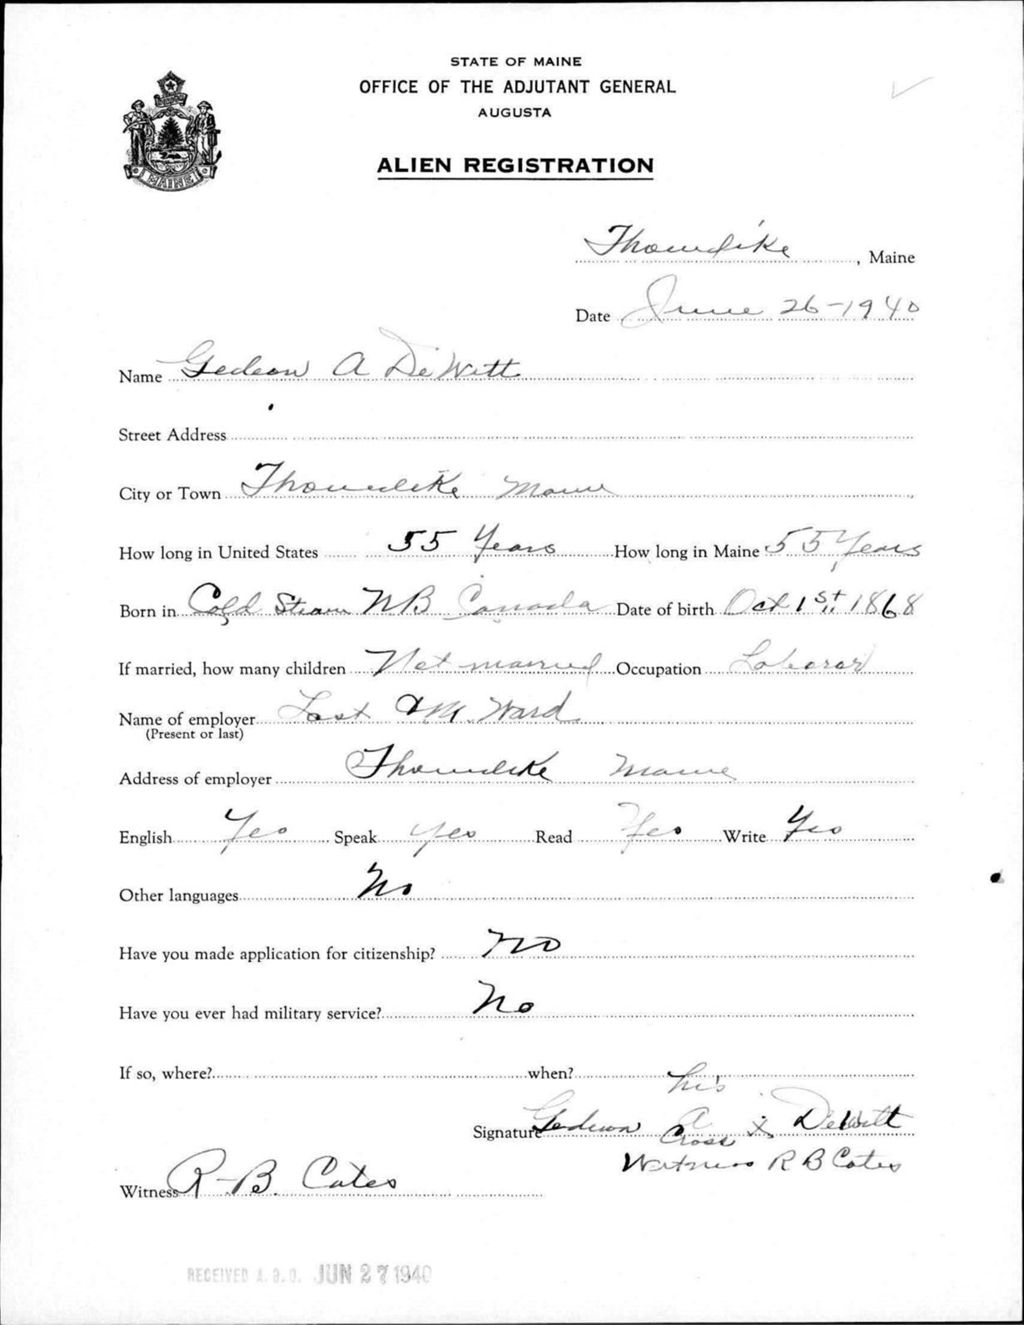 STATE OF MAINE
OFFICE OF THE ADJUTANT GENERAL
AUGUSTA
ALIEN REGISTRATION
MAINE
Thorndike, Maine
Date June 26-1940
Name Gedeon A DeWitt
Street Address
City or Town Thorndike Maine
How long in United States 55 Years How long in Maine 55 Years
Born in Cold Stream NB Canada Date of birth Oct 1st, 1868
If married, how many children Not married Occupation Laborar
Name of employer Last M. Ward
(Present or last)
Address of employer Thorndike Maine
English Yes Speak Yes Read Yes Write Yes
Other languages No
Have you made application for citizenship? No
Have you ever had military service? No
If so, where? when?
his
Signature Gedeon A X DeWitt
Cross
Witness R B Cates
Witness R-B. Cates
RECEIVED A. G. O. JUN 27 1940